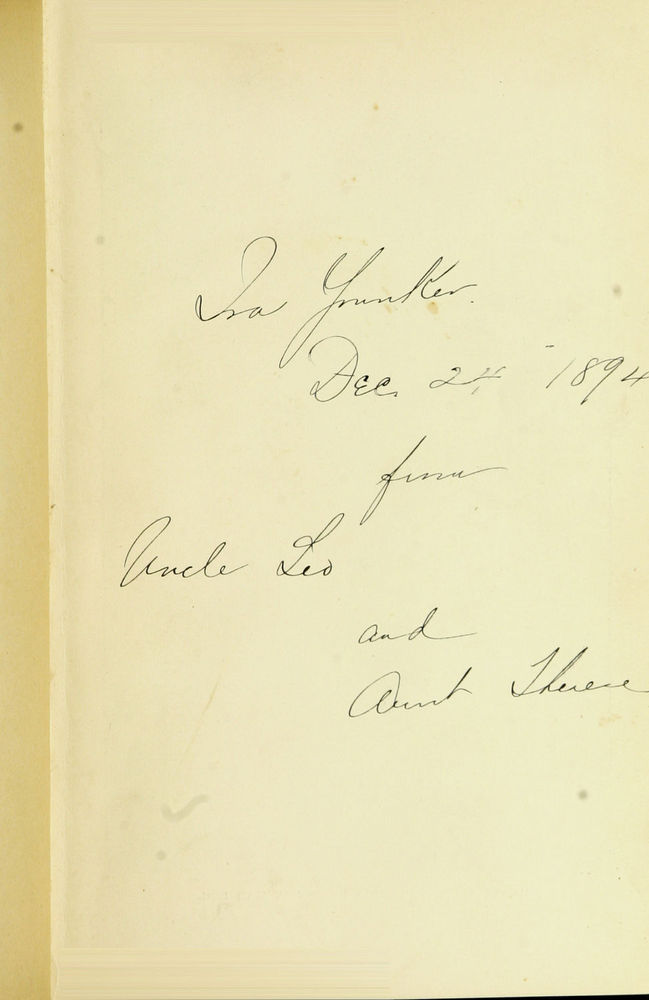 Ira Younker.
Dec. 24, 1894
from
Uncle Leo
and
Aunt Therese